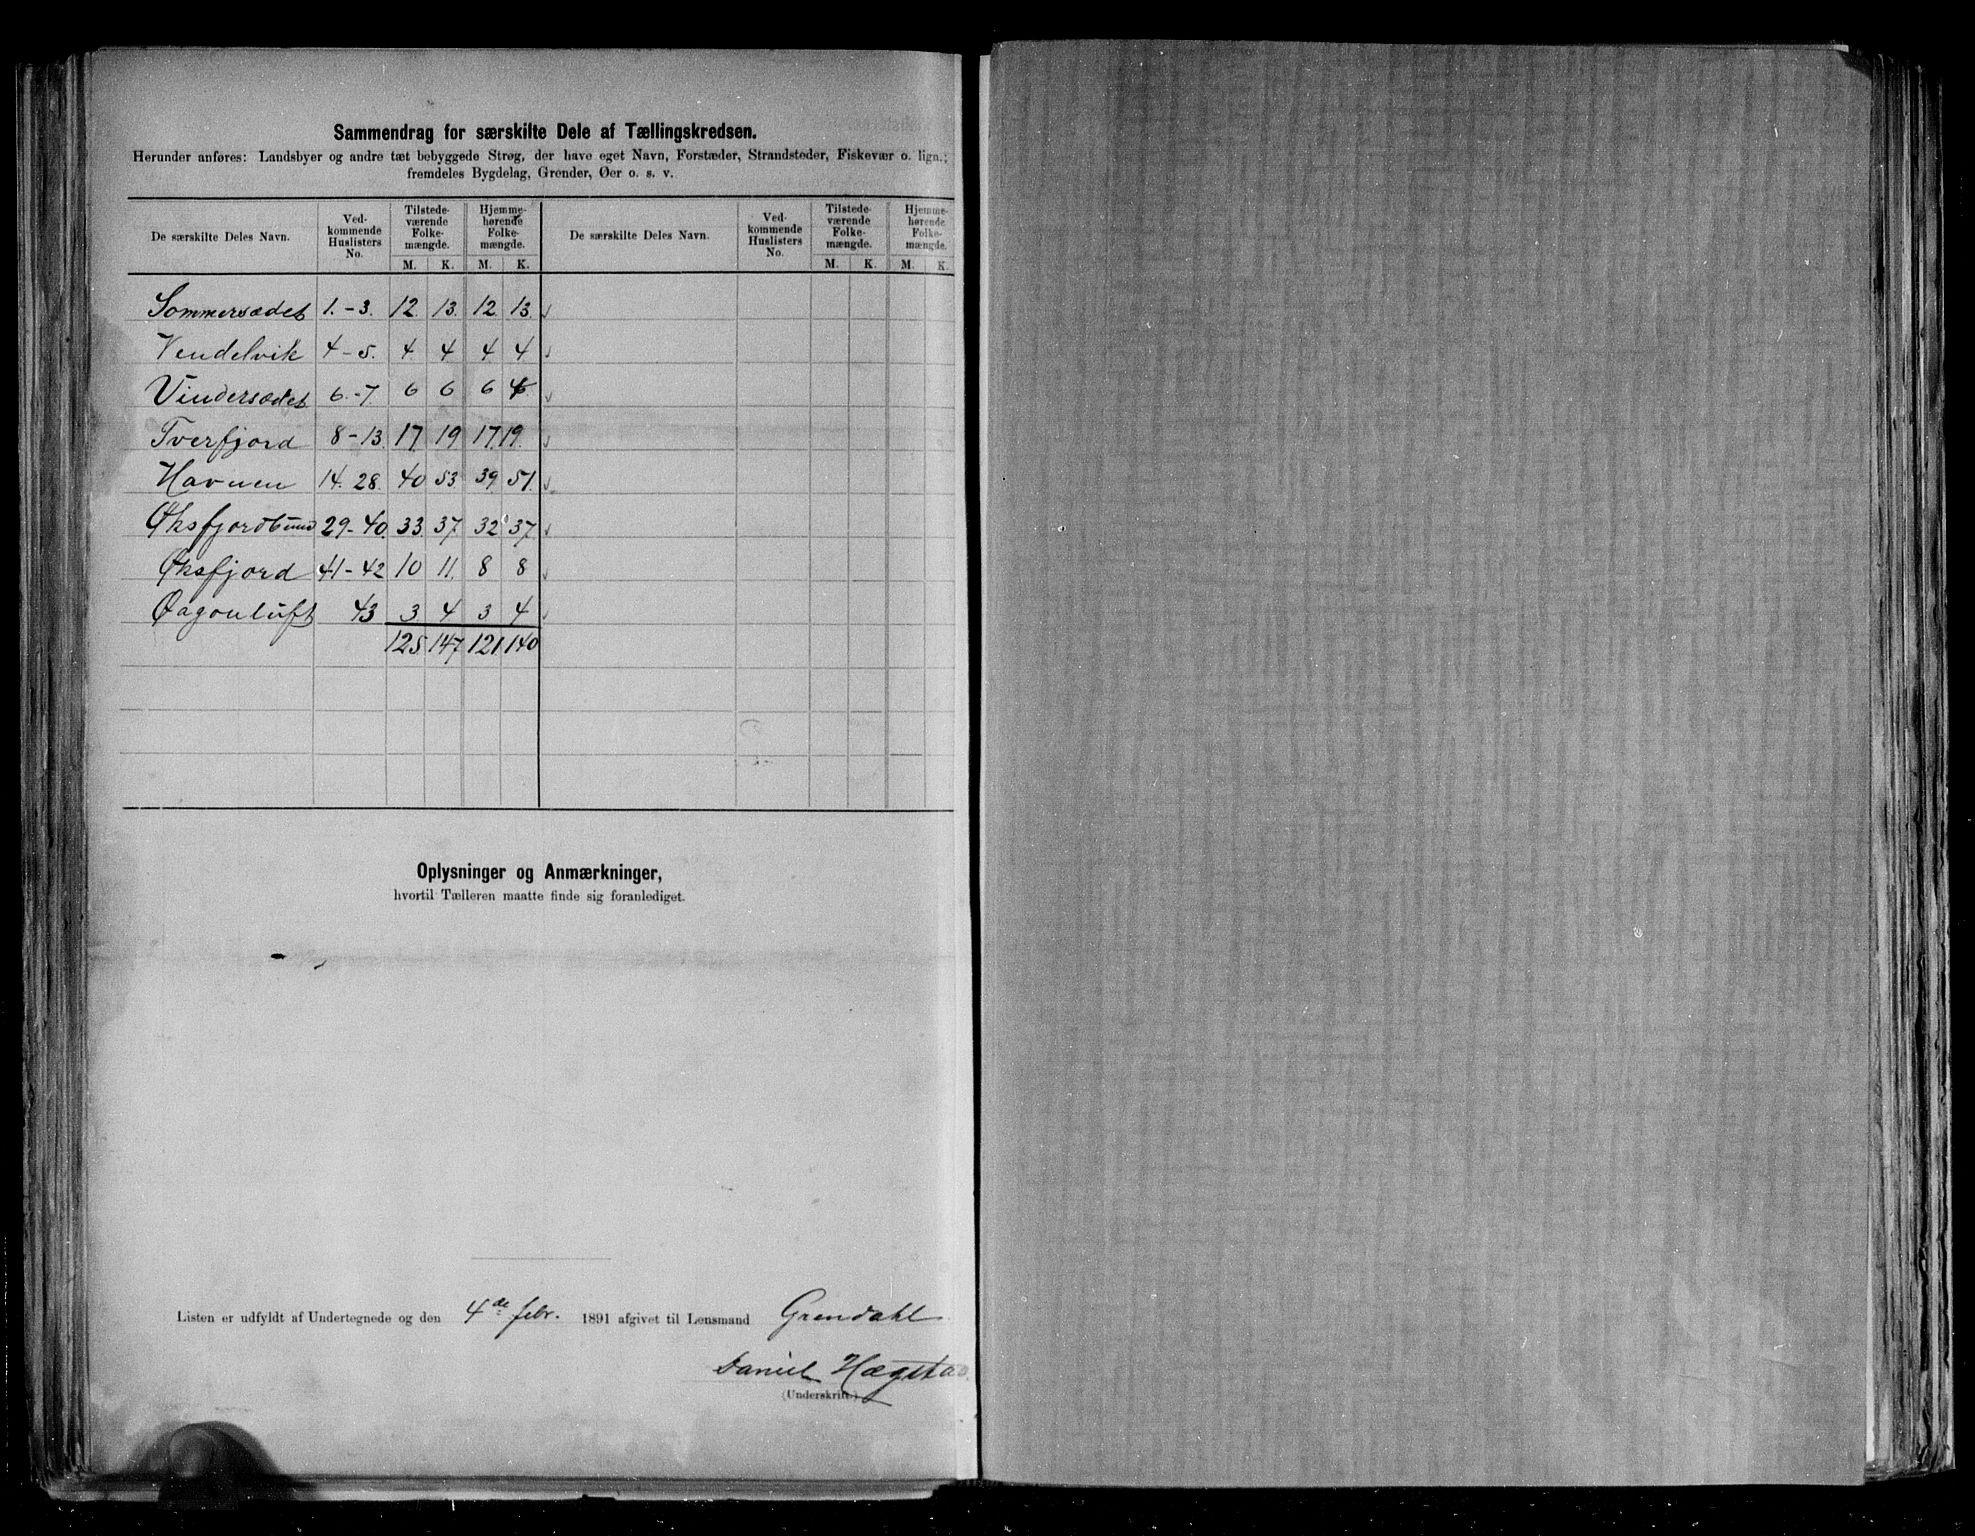 Sammendrag for særskilte Dele af Tællingskredsen.
Herunder anføres: Landsbyer og andre tæt bebyggede Strøg, der have eget Navn, Forstæder, Strandsteder, Fiskevær o. lign.;
fremdeles Bygdelag, Grender, Øer o. s. v.
De særskilte Deles Navn. Ved-kommende Huslisters No. Tilstede-værende Folke-mængde. Hjemme-hørende Folke-mængde. De særskilte Deles Navn. Ved-kommende Huslisters No. Tilstede-værende Folke-mængde. Hjemme-hørende Folke-mængde.
M. K. M. K. M. K. M. K.
Sommersædet 1. - 3. 12. 13. 12. 13.
Vendelvik 4 - 5. 4. 4 4 4
Vindersædet 6. - 7. 6 6 6
Tverfjord 8 - 13. 17. 19 17. 19.
Havnen 14. 28. 40 53. 39. 51.
Øksfjordbund 29 - 40. 33. 37. 32 37.
Øksfjord 41 - 42 10 11. 8 8
43 3 4 3 4
125. 147 121. 140
Oplysninger og Anmærkninger,
hvortil Tælleren maatte finde sig foranlediget.
Listen er udfyldt af Undertegnede og den 4de febr. 1891 afgivet til Lensmand Grendahl
Daniel Hægstad.
(Underskrift.)